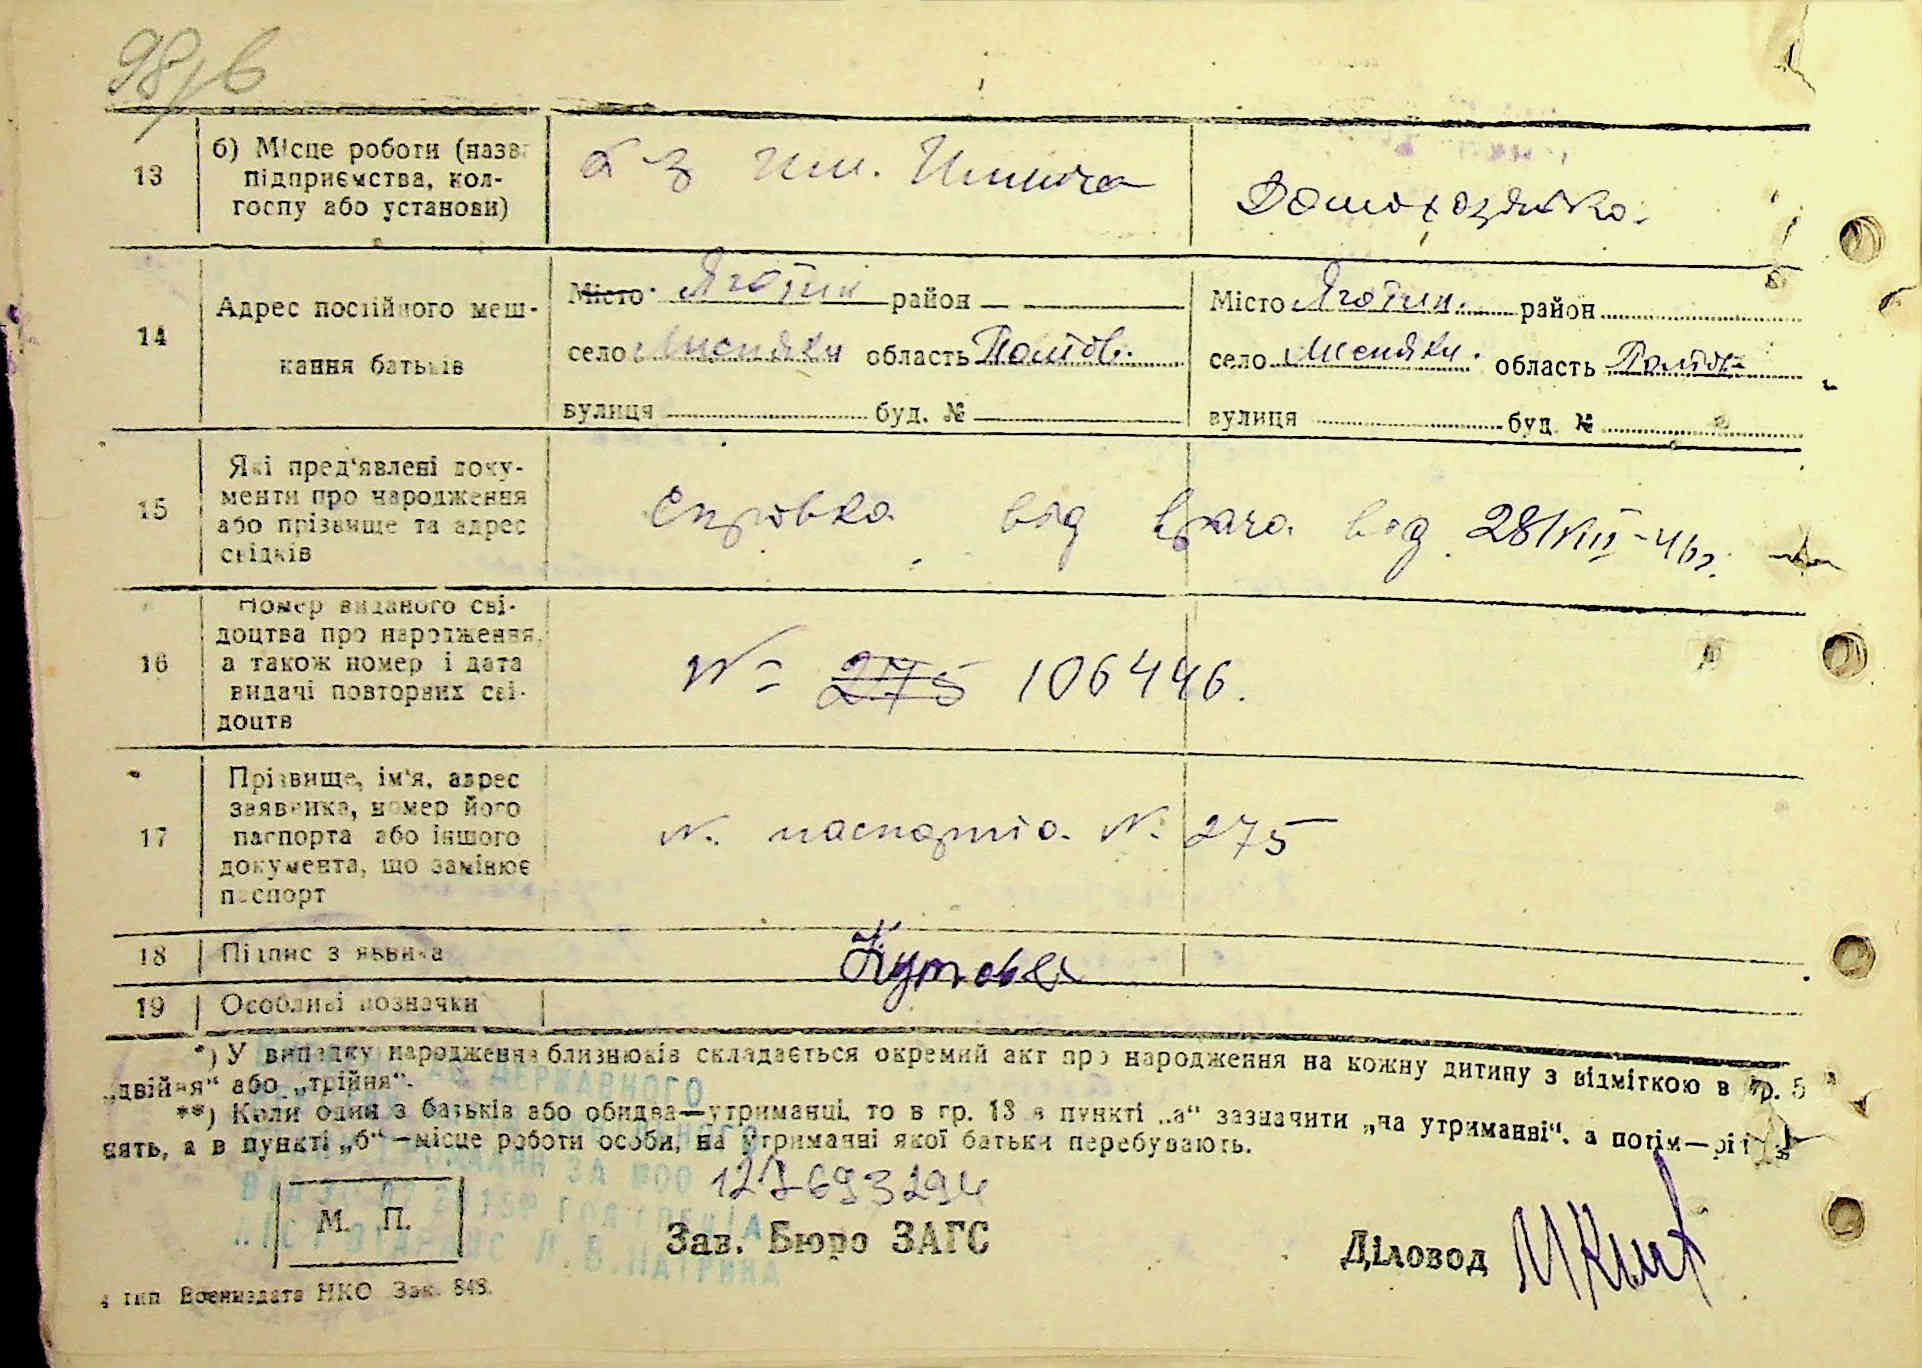 98/6
13
б) Місце роботи (назва
підприємства, кол-
госпу або установи)
к з им. Ильича
Домохозяйка.
14
Адрес постійного меш-
кання батьків
Місто Яготин район
село Лисняки область Полтов.
вулиця буд. №
Місто Яготин. район
село Лисняки. область Полтов.
вулиця буд. №
15
Які пред'явлені доку-
менти про народження
або прізвище та адрес
свідків
Справка від врача від 28/VIII-46г.
16
Номер виданого сві-
доцтва про народження,
а також номер і дата
видачі повторних сві-
доцтв
№ 275 106446.
17
Прізвище, ім'я, адрес
заявника, номер його
паспорта або іншого
документа, що замінює
паспорт
№. паспорта. №. 275
18
Підпис заявника
19
Особливі позначки
*) У випадку народження близнюків складається окремий акт про народження на кожну дитину з відміткою в гр. 5
„двійня“ або „трійня“.
**) Коли один з батьків або обидва—утриманці, то в гр. 13 в пункті „а“ зазначити „на утриманні“, а потім—
нять, а в пункті „б“—місце роботи особи, на утриманні якої батьки перебувають.
ДЕРЖАВНОГО
127693294
М. П.
Зав. Бюро ЗАГС
Діловод
4 тип Воениздата НКО Зак. 848.